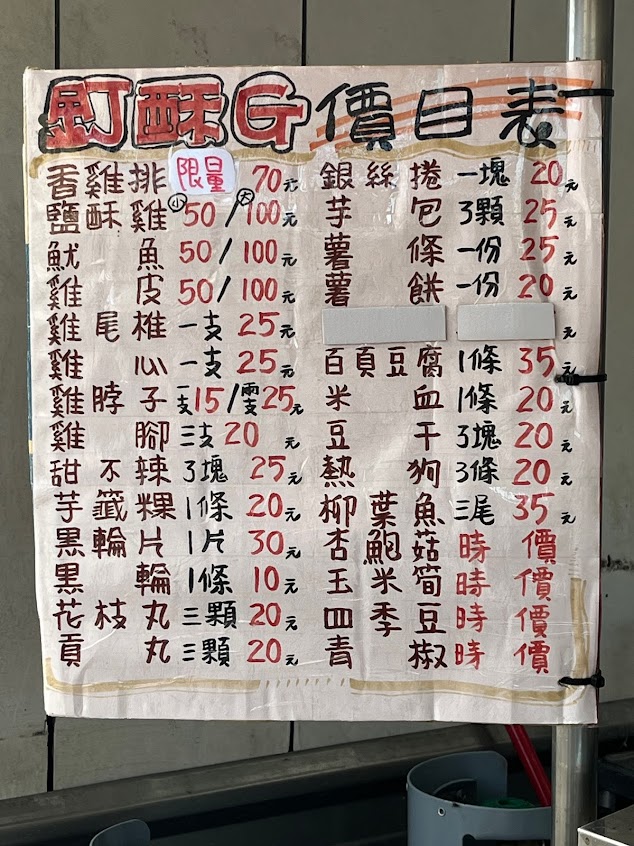 釘酥G價目表
香雞排 限量 70元
鹽酥雞 小50/大100元
魷魚 50/100元
雞皮 50/100元
雞尾椎 一支25元
雞心 一支25元
雞脖子 一支15/兩支25元
雞腳 三支20元
甜不辣 3塊25元
芋籤粿 1條20元
黑輪片 1片30元
黑輪 1條10元
花枝丸 三顆20元
貢丸 三顆20元
銀絲捲 一塊20元
芋包 3顆25元
薯條 一份25元
薯餅 一份20元
百頁豆腐 1條35元
米血 1條20元
豆干 3塊20元
熱狗 3條20元
柳葉魚 三尾35元
杏鮑菇 時價
玉米筍 時價
四季豆 時價
青椒 時價